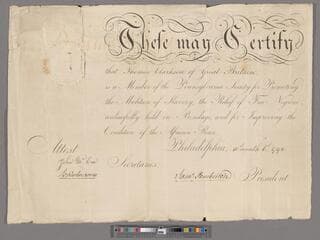 These may Certify
that Thomas Clarkson of Great Britain
is a Member of the Pennsylvania Society for Promoting
the Abolition of Slavery, the Relief of Free Negroes
unlawfully held in Bondage, and for Improving the
Condition of the African Race.
Philadelphia,
Attest
Secretaries.
Jas. Pemberton President